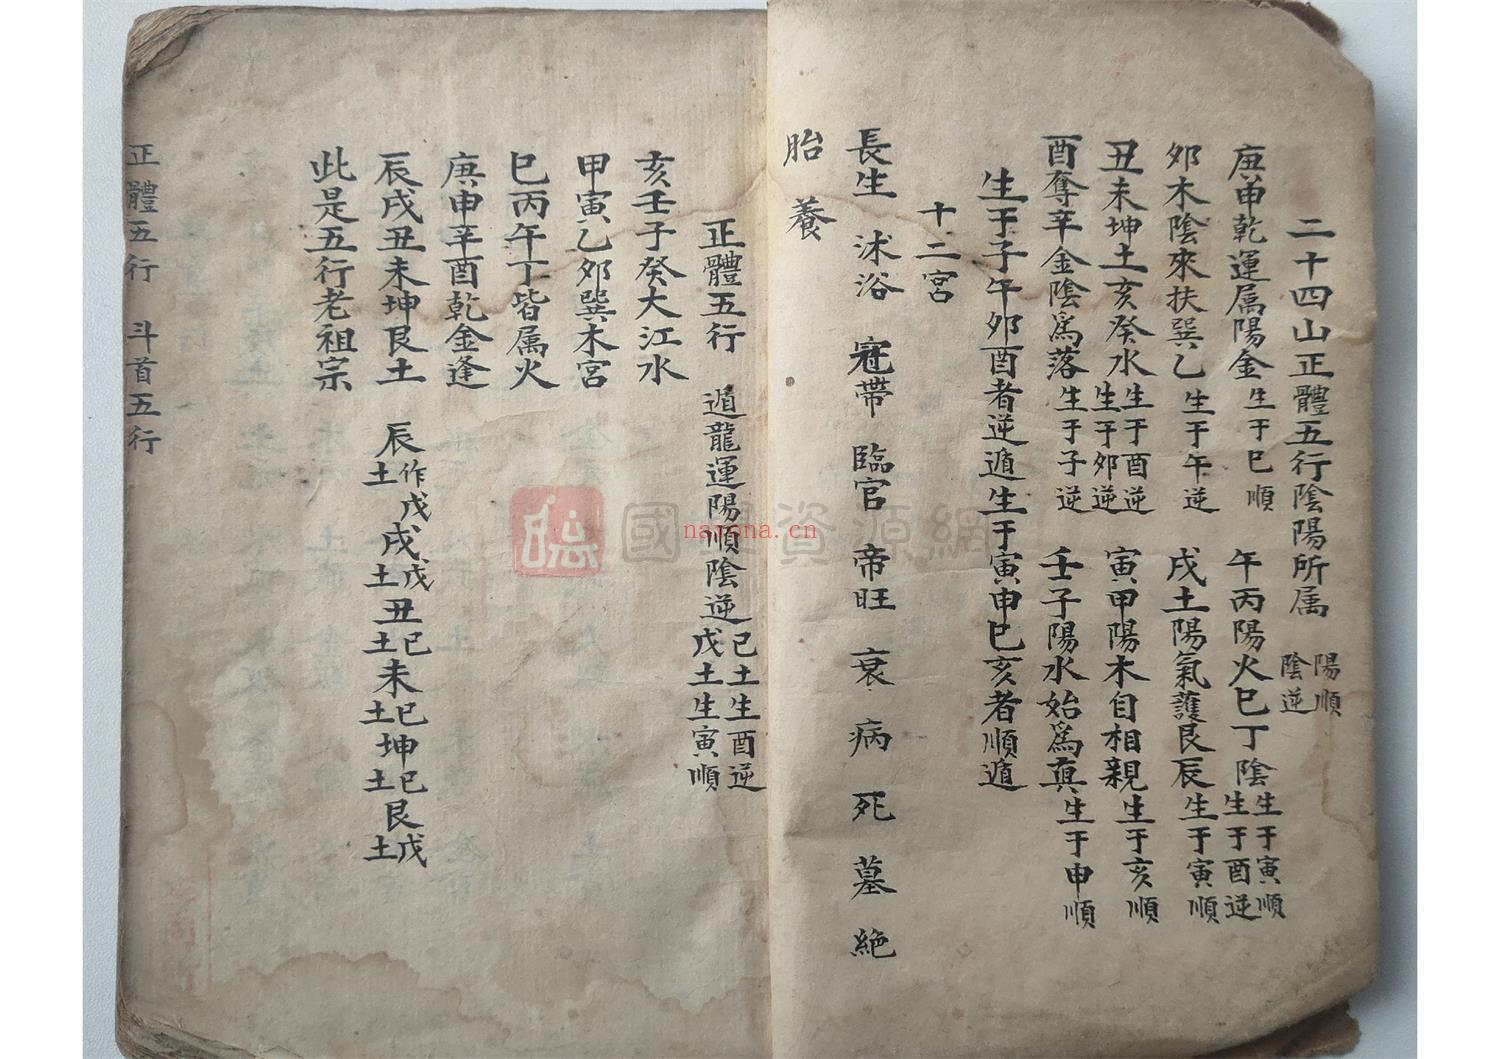 二十四山正體五行陰陽所属 陽順 陰逆
庚申乾運属陽金 生于巳順 午丙陽火巳丁陰 生于寅順 生于酉逆
夘木陰來扶巽乙 生于午逆 戌土陽氣護艮辰 生于寅順
丑未坤土亥癸水 生于酉逆 生于夘逆 寅甲陽木自相親 生于亥順
酉奪辛金陰爲落 生于子逆 壬子陽水始爲真 生于申順
生于子午夘酉者逆遁生于寅申巳亥者順遁
十二宮
長生 沭浴 冠帶 臨官 帝旺 衰 病 死 墓 絶
胎 養
正體五行 遁龍運陽順陰逆 巳土生酉逆 戊土生寅順
亥壬子癸大江水
甲寅乙夘巽木宮
巳丙午丁皆属火
庚申辛酉乾金逢
辰戌丑未坤艮土 辰作戊土 戌戊土 丑巳土 未巳土 坤巳土 艮戊土
此是五行老祖宗
正體五行 斗首五行
國學資源網
nayona.cn